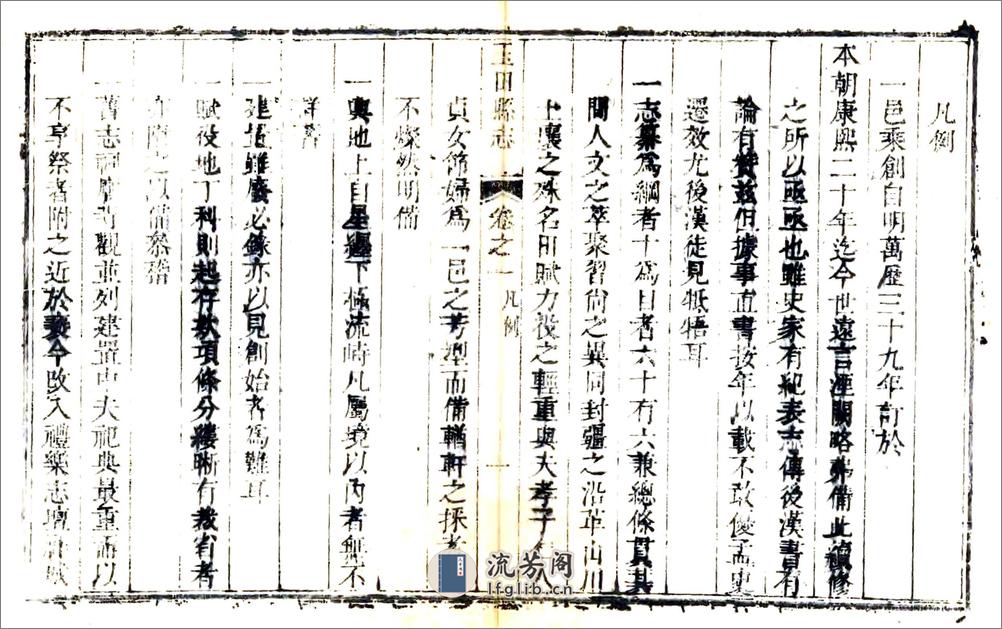 凡例
一邑乘創自明萬歷三十九年訂於
本朝康熙二十年迄今世遠言湮闕略弗備此續修
之所以亟亟也雖史家有紀表志傳後漢書有
論有贊茲但據事直書按年以載不敢
還效尤後漢徒見牴牾耳
一志纂為綱者十為目者六十有六兼總條貫其
間人文之萃聚習尚之異同封疆之沿革山川
土壤之殊名田賦力役之輕重與夫孝子
貞女節婦為一邑之芳型而備輶軒之採者
不燦然明備
一輿地上自星纏下極流峙凡屬境以內者無不
詳
一建置雖廢必錄亦以見創始者為難耳
一賦役地丁科則起存款項條分縷晰有裁省者
之以備叅
一舊志並列建置中夫祀典最重而以
不享祭者附之近於褻今改入禮樂志壇
玉田縣志
卷之一
凡例
一
流芳阁
lfglib.cn